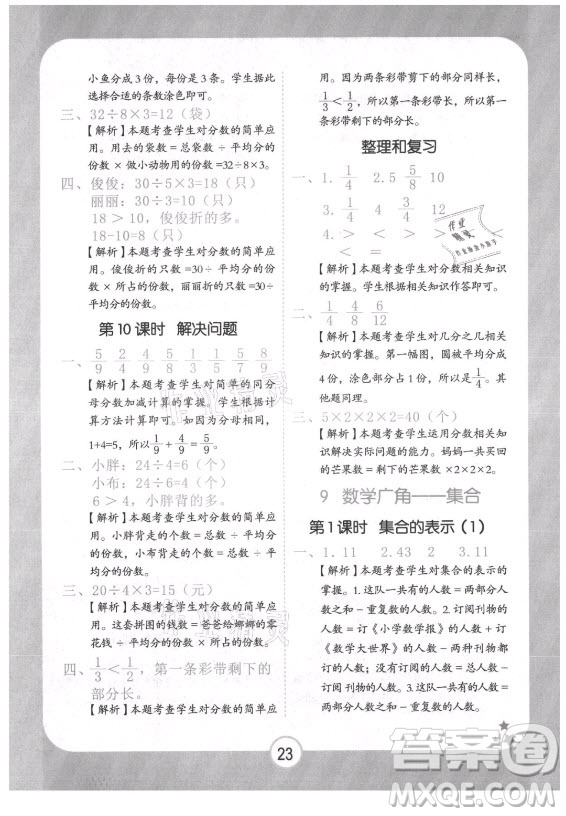 小鱼分成3份，每份是3条。学生据此
选择合适的条数涂色即可。
三、32÷8×3=12（袋）
【解析】本题考查学生对分数的简单应
用。用去的袋数=总袋数÷平均分的
份数×做小动物用的份数=32÷8×3。
四、俊俊：30÷5×3=18（只）
丽丽：30÷3=10（只）
18＞10，俊俊折的多。
18-10=8（只）
【解析】本题考查学生对分数的简单应
用。俊俊折的只数=30÷平均分的份
数×所占的份数，丽丽折的只数=30÷
平均分的份数。
第10课时 解决问题
一、5/9 2/4 4/9 5/8 1/5 5/8 8/9
【解析】本题考查学生对简单的同分
母分数加减计算的掌握。学生根据计算
方法计算即可。如因为分母相同，
1+4=5，所以1/9+4/9=5/9。
二、小胖：24÷4=6（个）
小布：24÷6=4（个）
6＞4，小胖背的多。
【解析】本题考查学生对分数的简单应
用。小胖背走的个数=总个数÷平均
分的份数，小布背走的个数=总个数÷
平均分的份数。
三、20÷4×3=15（元）
【解析】本题考查学生对分数的简单应
用。这套拼图的钱数=爸爸给娜娜的零
花钱÷平均分的份数×所占的份数。
四、1/3＜1/2，第一条彩带剩下的
部分长。
【解析】本题考查学生对分数的简单应
用。因为两条彩带剪下的部分同样长，
1/3＜1/2，所以第一条彩带剩下的部分占
整理和复习
一、1. 1/4 2. 5 5/8 10
3. 1/4 2/4
＜ ＞ ＜ ＝ ＞ ＜
【解析】本题考查学生对分数相关知识
的掌握。学生根据相关知识作答即可。
二、1/4 4/8 6/12
【解析】本题考查学生对几分之几相关
知识的掌握。第一幅图，圆被平均分成
4份，空白部分占1份，所以是1/4。其
他题同理。
三、5×2×2×2=40（个）
【解析】本题考查学生运用分数相关知
识解决实际问题的能力。妈妈一共买
的芒果数=剩下的芒果数×2×2×2。
9 数学广角——集合
第1课时 集合的表示（1）
一、1. 11 2. 43 2 3. 11
【解析】本题考查学生对集合的表示的
掌握。1. 这队一共有的人数=两部分
人数之和－重复的人数。2. 订阅刊物的
人数=订《小学数学报》的人数+订
《数学大世界》的人数－重复订的人
数；没有订阅的人数=总人数－订阅
刊物的人数。3. 这队一共有的人数=
两部分人数之和－重复的人数。
23
答案圈
MXQE.COM